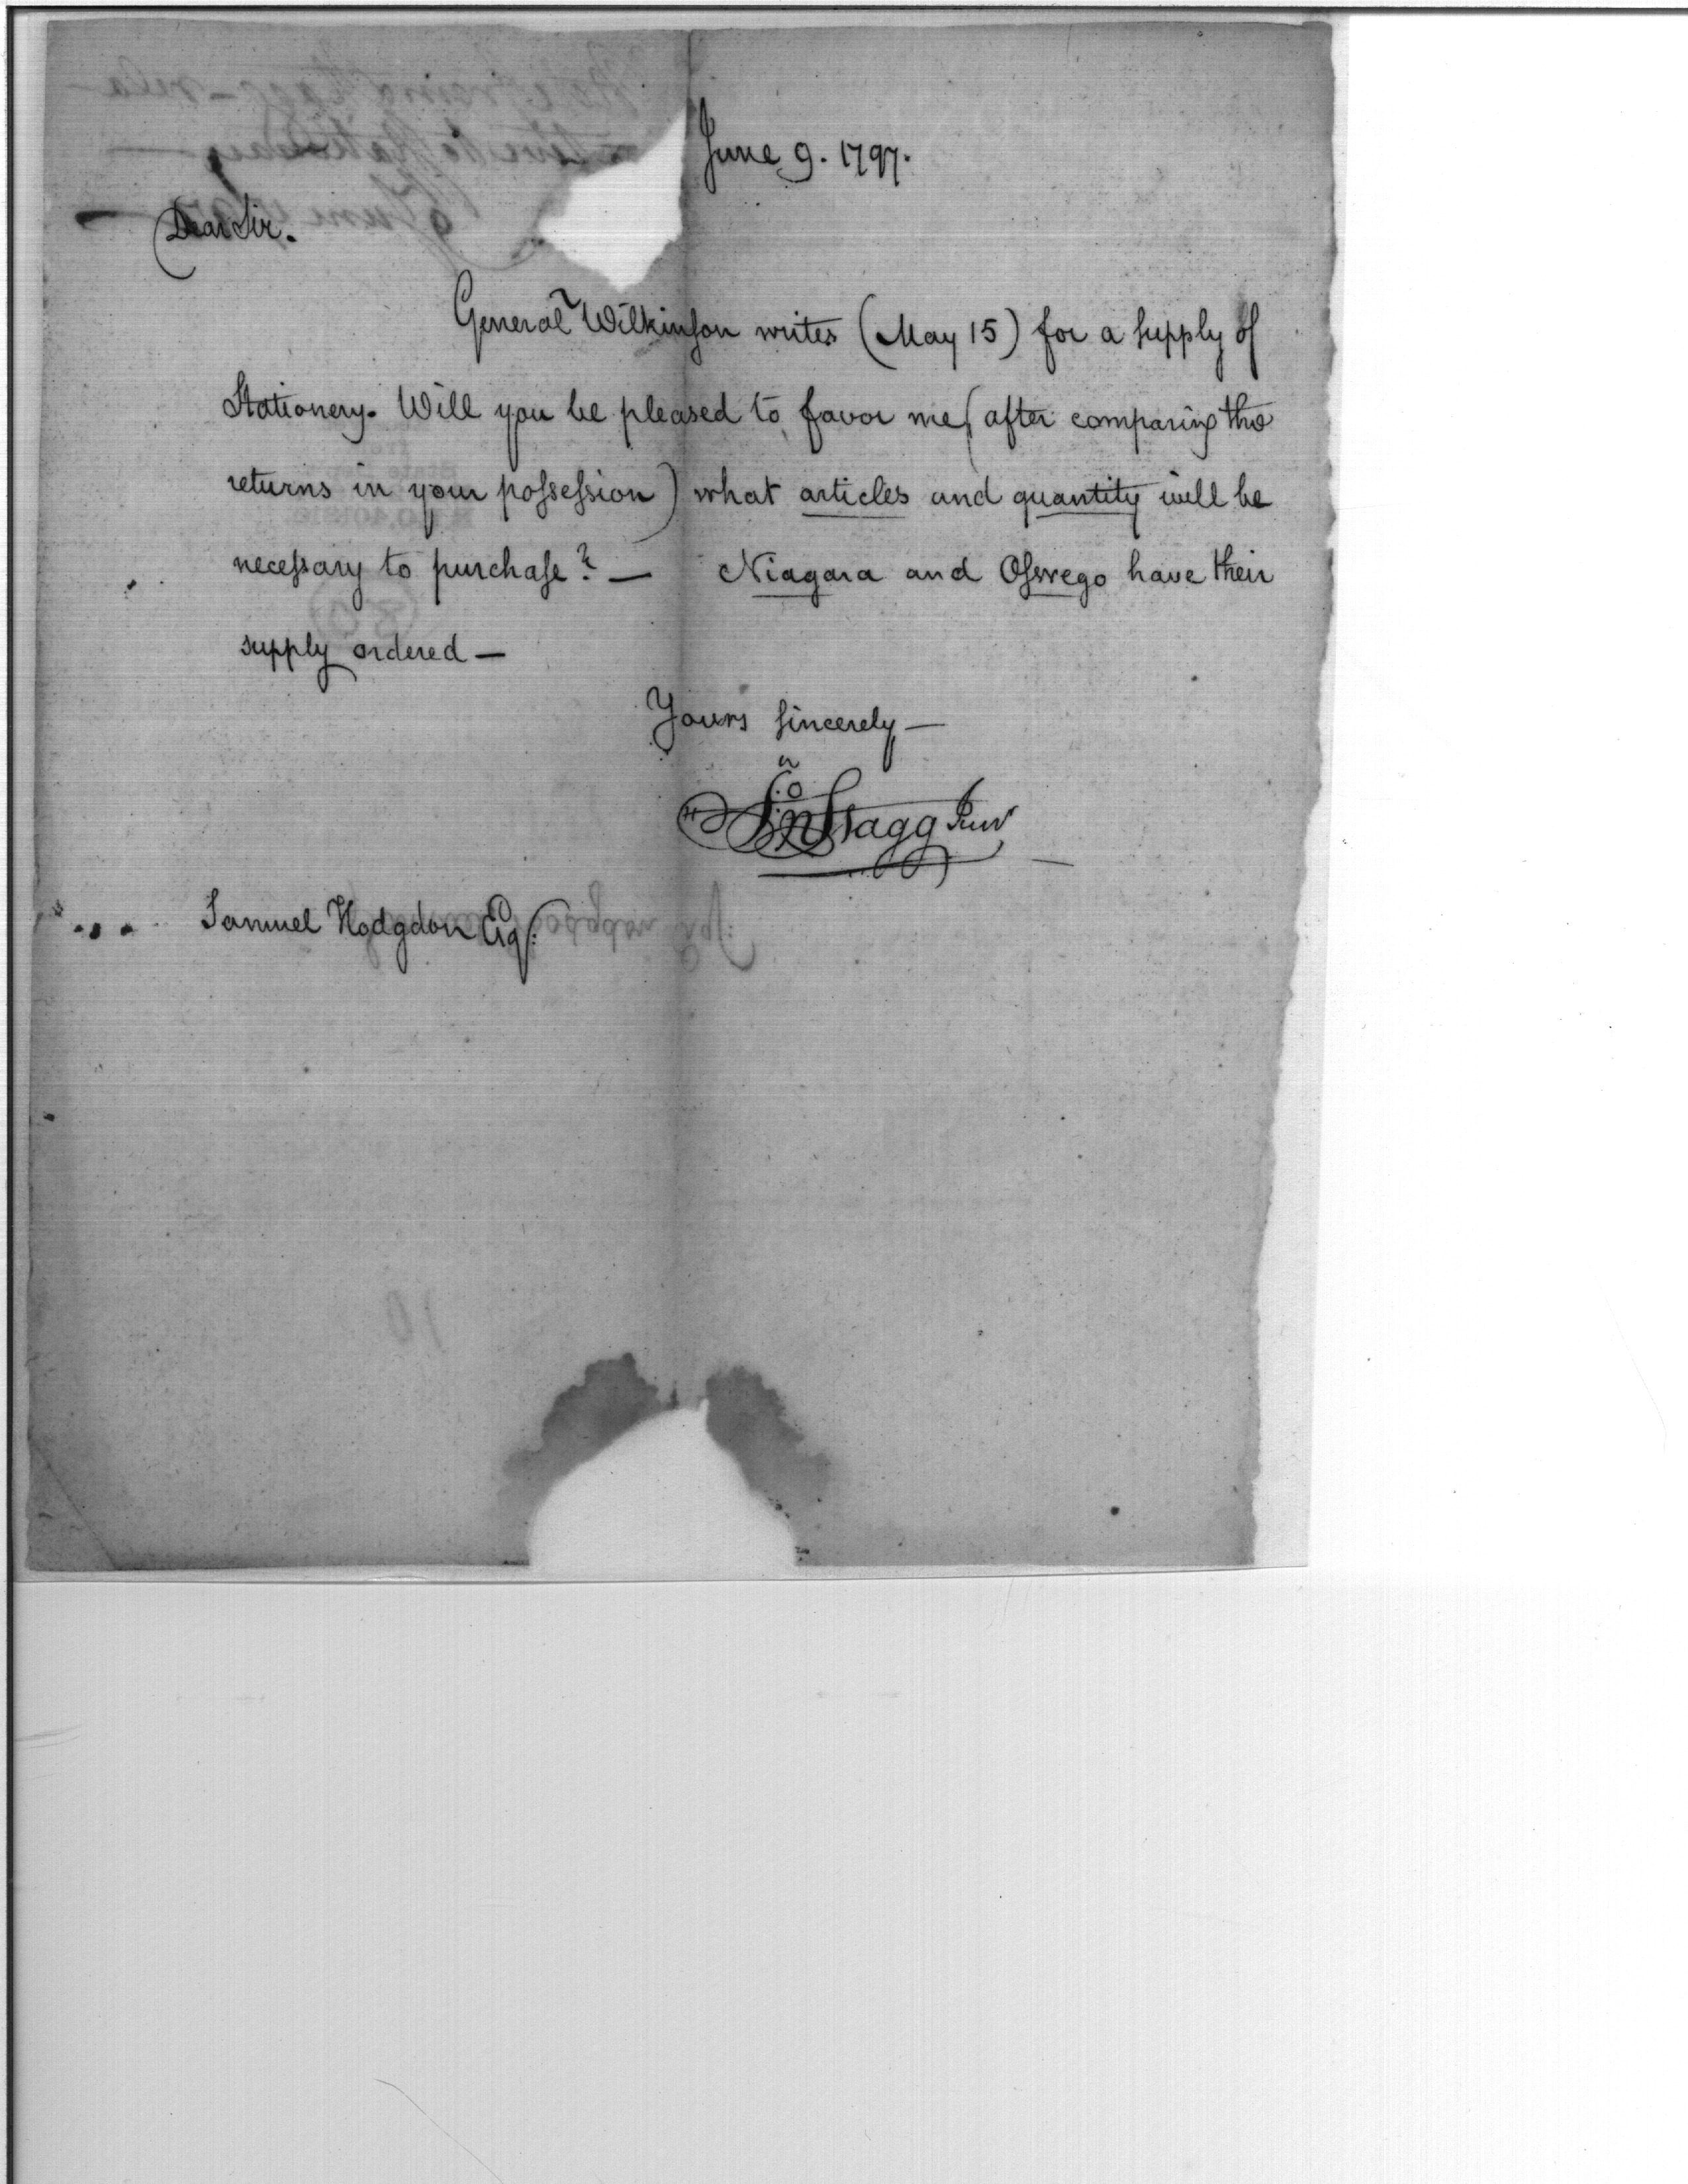 June 9. 1797.
Dear Sir.
General Wilkinson writes (May 15) for a supply of
Stationery. Will you be pleased to favor me (after comparing the
returns in your possession) what articles and quantity will be
necessary to purchase? — Niagara and Oswego have their
supply ordered —
Yours sincerely —
Jno Stagg Junr
Samuel Hodgdon Esq: